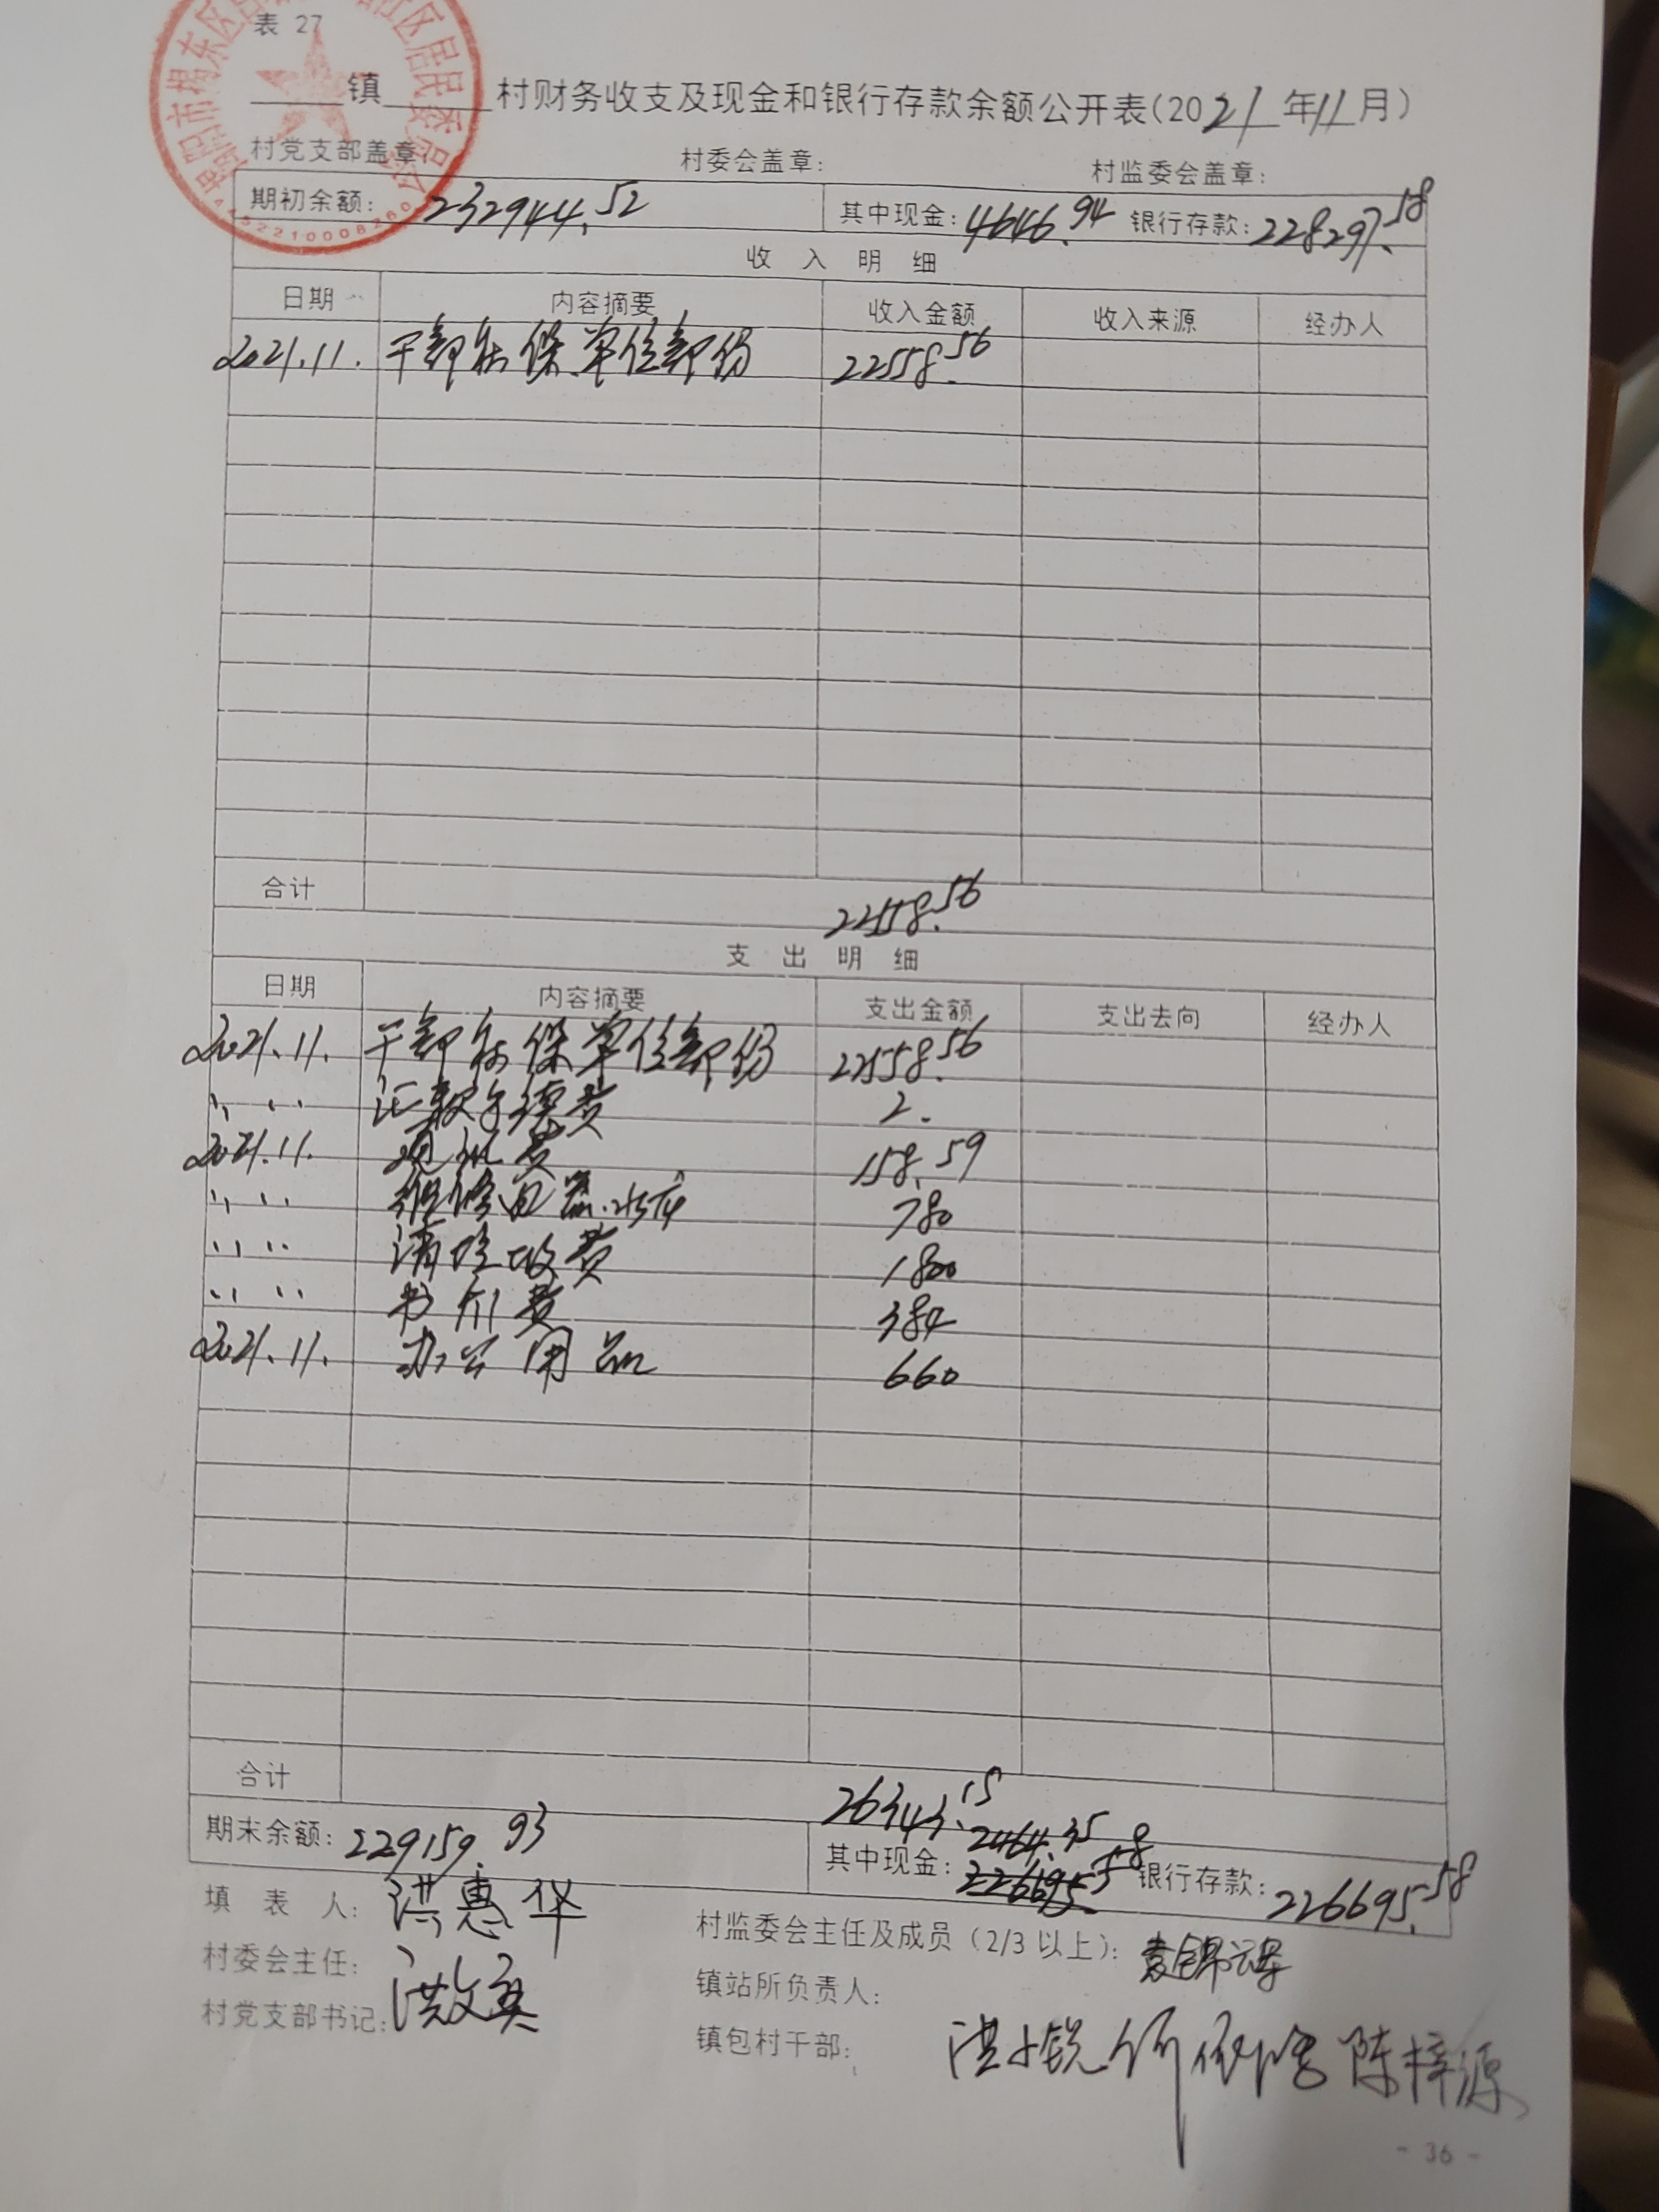 表 27
镇 村财务收支及现金和银行存款余额公开表(2021年11月)
村党支部盖章: 村委会盖章: 村监委会盖章:
期初余额: 232944.52 其中现金: 4646.94 银行存款: 228297.58
收入明细
日期 内容摘要 收入金额 收入来源 经办人
2021.11. 干部社保单位部份 22558.56
合计 22558.56
支出明细
日期 内容摘要 支出金额 支出去向 经办人
2021.11. 干部社保单位部份 22558.56
〃 〃 汇款手续费 2.
2021.11. 费 158.59
〃 〃 维修电器.水库 780
〃 〃 清垃圾费 1800
〃 〃 书刊费 384
2021.11. 办公用品 660
合计 26343.15
期末余额: 229159.93 其中现金: 2464.35 银行存款: 226695.58
填表人: 洪惠华
村委会主任:
村党支部书记: 洪文英
村监委会主任及成员(2/3以上): 袁锦
镇站所负责人:
镇包村干部: 洪小锐 陈梓源
- 36 -